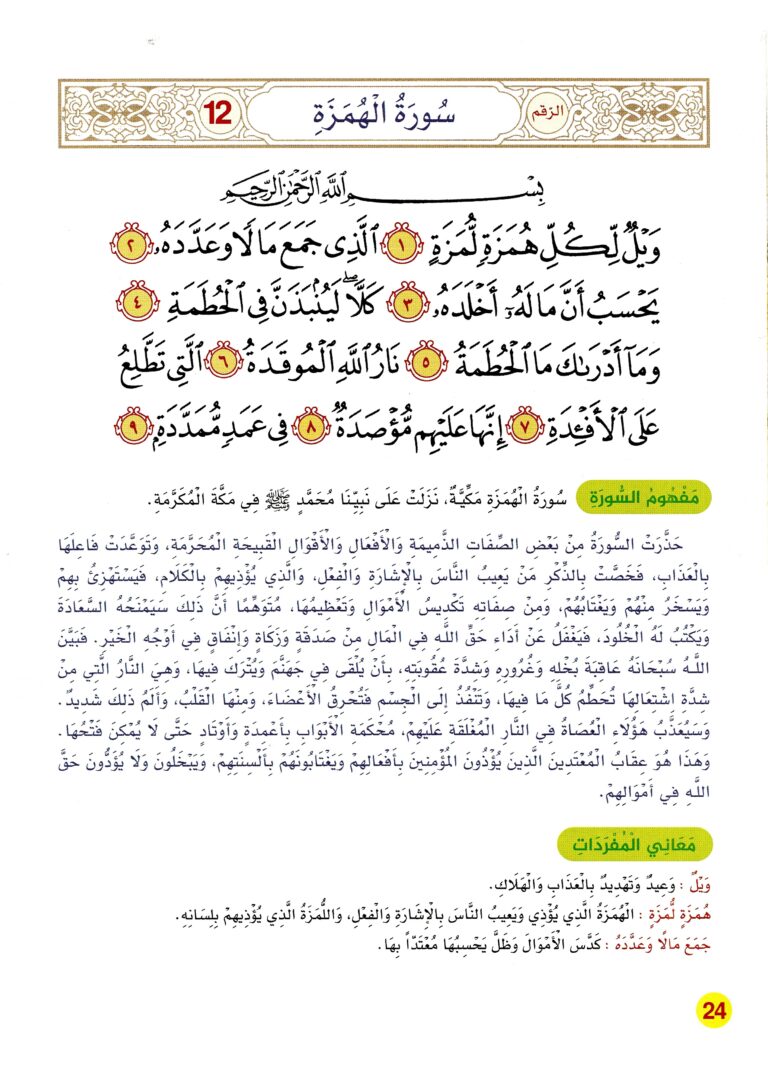 الرّقم سُورَةُ الْهُمَزَةِ 12
بِسْمِ اللَّهِ الرَّحْمَٰنِ الرَّحِيمِ
وَيْلٌ لِّكُلِّ هُمَزَةٍ لُّمَزَةٍ ١ ٱلَّذِى جَمَعَ مَالًا وَعَدَّدَهُۥ ٢
يَحْسَبُ أَنَّ مَالَهُۥٓ أَخْلَدَهُۥ ٣ كَلَّا ۖ لَيُنۢبَذَنَّ فِى ٱلْحُطَمَةِ ٤
وَمَآ أَدْرَىٰكَ مَا ٱلْحُطَمَةُ ٥ نَارُ ٱللَّهِ ٱلْمُوقَدَةُ ٦ ٱلَّتِى تَطَّلِعُ
عَلَى ٱلْأَفْـِٔدَةِ ٧ إِنَّهَا عَلَيْهِم مُّؤْصَدَةٌ ٨ فِى عَمَدٍ مُّمَدَّدَةٍۭ ٩
مَفْهُومُ السُّورَةِ سُورَةُ الْهُمَزَةِ مَكِّيَّةٌ، نَزَلَتْ عَلَى نَبِيِّنَا مُحَمَّدٍ ﷺ فِي مَكَّةَ الْمُكَرَّمَةِ.
حَذَّرَتْ السُّورَةُ مِنْ بَعْضِ الصِّفَاتِ الذَّمِيمَةِ وَالْأَفْعَالِ وَالْأَقْوَالِ الْقَبِيحَةِ الْمُحَرَّمَةِ، وَتَوَعَّدَتْ فَاعِلَهَا
بِالْعَذَابِ، فَخَصَّتْ بِالذِّكْرِ مَنْ يَعِيبُ النَّاسَ بِالْإِشَارَةِ وَالْفِعْلِ، وَالَّذِي يُؤْذِيهِمْ بِالْكَلَامِ، فَيَسْتَهْزِئُ بِهِمْ
وَيَسْخَرُ مِنْهُمْ وَيَغْتَابُهُمْ، وَمِنْ صِفَاتِهِ تَكْدِيسُ الْأَمْوَالِ وَتَعْظِيمُهَا، مُتَوَهِّمًا أَنَّ ذَلِكَ سَيَمْنَحُهُ السَّعَادَةَ
وَيَكْتُبُ لَهُ الْخُلُودَ، فَيَغْفُلُ عَنْ أَدَاءِ حَقِّ اللَّهِ فِي الْمَالِ مِنْ صَدَقَةٍ وَزَكَاةٍ وَإِنْفَاقٍ فِي أَوْجُهِ الْخَيْرِ. فَبَيَّنَ
اللَّهُ سُبْحَانَهُ عَاقِبَةَ بُخْلِهِ وَغُرُورِهِ وَشِدَّةَ عُقُوبَتِهِ، بِأَنْ يُلْقَى فِي جَهَنَّمَ وَيُتْرَكَ فِيهَا، وَهِيَ النَّارُ الَّتِي مِنْ
شِدَّةِ اشْتِعَالِهَا تُحَطِّمُ كُلَّ مَا فِيهَا، وَتَنْفُذُ إِلَى الْجِسْمِ فَتُحْرِقُ الْأَعْضَاءَ، وَمِنْهَا الْقَلْبُ، وَأَلَمُ ذَلِكَ شَدِيدٌ.
وَسَيُعَذَّبُ هَؤُلَاءِ الْعُصَاةُ فِي النَّارِ الْمُغْلَقَةِ عَلَيْهِمْ، مُحْكَمَةِ الْأَبْوَابِ بِأَعْمِدَةٍ وَأَوْتَادٍ حَتَّى لَا يُمْكِنَ فَتْحُهَا.
وَهَذَا هُوَ عِقَابُ الْمُعْتَدِينَ الَّذِينَ يُؤْذُونَ الْمُؤْمِنِينَ بِأَفْعَالِهِمْ وَيَغْتَابُونَهُمْ بِأَلْسِنَتِهِمْ، وَيَبْخَلُونَ وَلَا يُؤَدُّونَ حَقَّ
اللَّهِ فِي أَمْوَالِهِمْ.
مَعَانِي الْمُفْرَدَاتِ
وَيْلٌ : وَعِيدٌ وَتَهْدِيدٌ بِالْعَذَابِ وَالْهَلَاكِ.
هُمَزَةٍ لُّمَزَةٍ : الْهُمَزَةُ الَّذِي يُؤْذِي وَيَعِيبُ النَّاسَ بِالْإِشَارَةِ وَالْفِعْلِ، وَاللُّمَزَةُ الَّذِي يُؤْذِيهِمْ بِلِسَانِهِ.
جَمَعَ مَالًا وَعَدَّدَهُ : كَدَّسَ الْأَمْوَالَ وَظَلَّ يَحْسِبُهَا مُعْتَدّاً بِهَا.
24